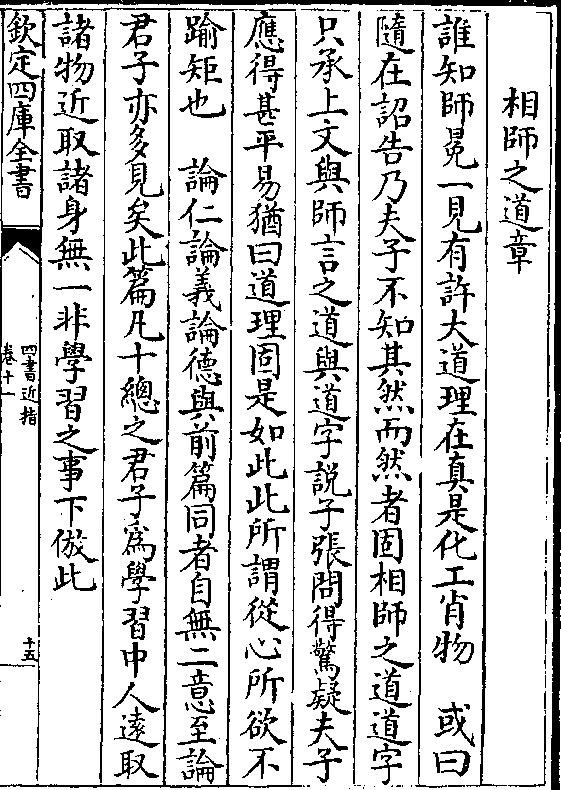 相師之道章
誰知師冕一見有許大道理在真是化工肖物　或曰
隨在詔告乃夫子不知其然而然者固相師之道道字
只承上文與師言之道與道字說子張問得驚疑夫子
應得甚平易猶曰道理固是如此此所謂從心所欲不
踰矩也　論仁論義論德與前篇同者自無二意至論
君子亦多見矣此篇凡十總之君子為學習中人遠取
諸物近取諸身無一非學習之事下倣此
欽定四庫全書
四書近指
卷十一
十五